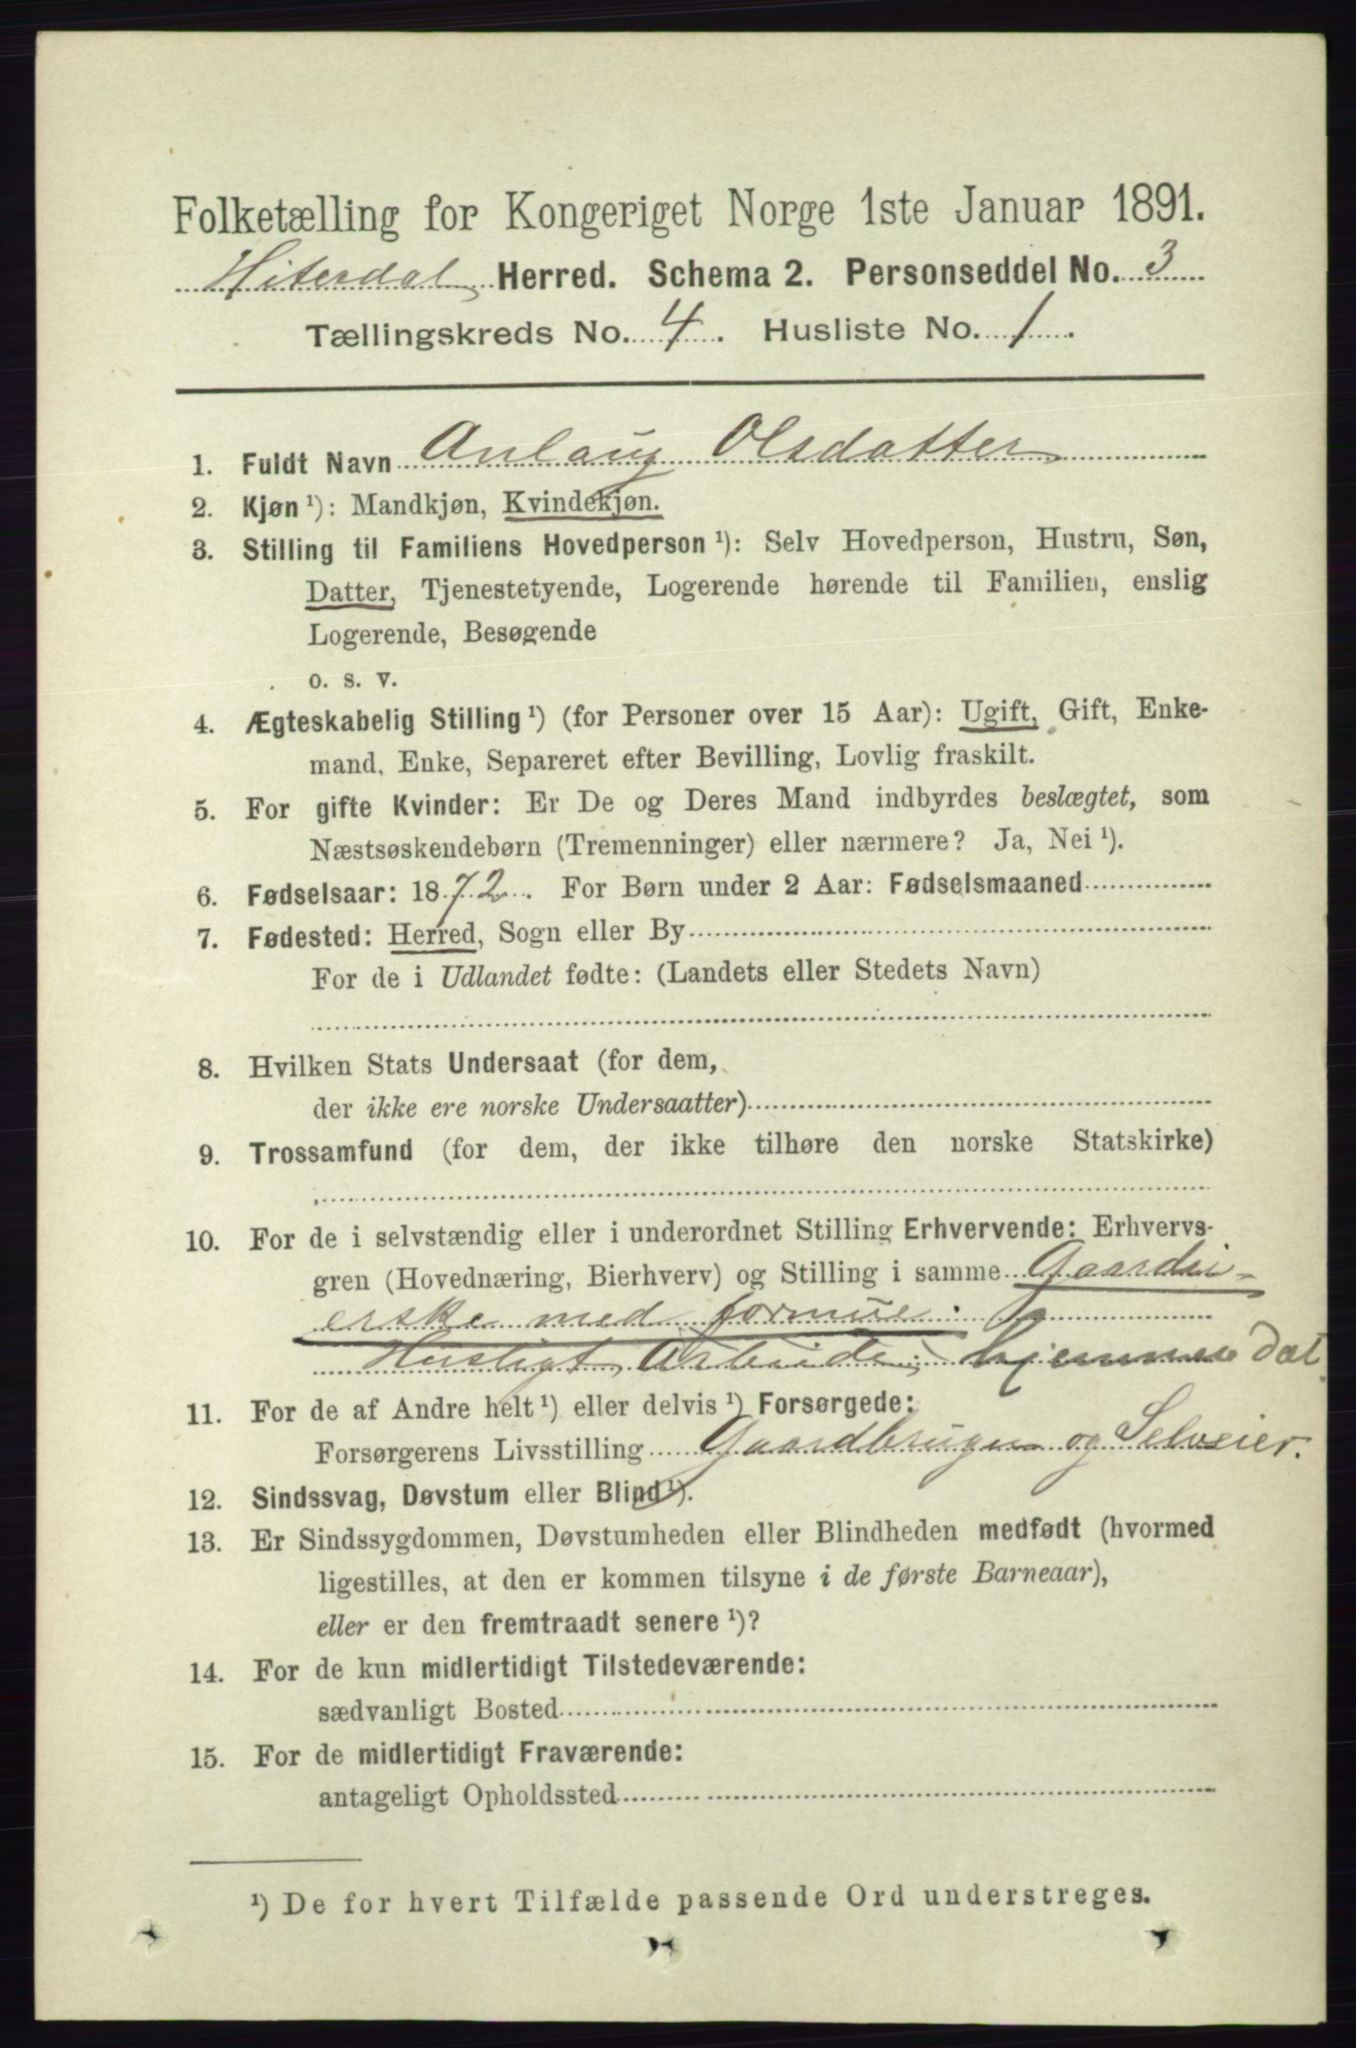 Folketælling for Kongeriget Norge 1ste Januar 1891.
Hiterdal Herred. Schema 2. Personseddel No. 3
Tællingskreds No. 4. Husliste No. 1.
1. Fuldt Navn Anlaug Olsdatter
2. Kjøn ¹): Mandkjøn, Kvindekjøn.
3. Stilling til Familiens Hovedperson ¹): Selv Hovedperson, Hustru, Søn,
Datter, Tjenestetyende, Logerende hørende til Familien, enslig
Logerende, Besøgende
o. s. v.
4. Ægteskabelig Stilling ¹) (for Personer over 15 Aar): Ugift, Gift, Enke-
mand, Enke, Separeret efter Bevilling, Lovlig fraskilt.
5. For gifte Kvinder: Er De og Deres Mand indbyrdes beslægtet, som
Næstsøskendebørn (Tremenninger) eller nærmere? Ja, Nei ¹).
6. Fødselsaar: 1872. For Børn under 2 Aar: Fødselsmaaned
7. Fødested: Herred, Sogn eller By
For de i Udlandet fødte: (Landets eller Stedets Navn)
8. Hvilken Stats Undersaat (for dem,
der ikke ere norske Undersaatter)
9. Trossamfund (for dem, der ikke tilhøre den norske Statskirke)
10. For de i selvstændig eller i underordnet Stilling Erhvervende: Erhvervs-
gren (Hovednæring, Bierhverv) og Stilling i samme Gaardei-
erske med formue.
Husligt Arbeide hjemme Dat.
11. For de af Andre helt ¹) eller delvis ¹) Forsørgede:
Forsørgerens Livsstilling Gaardbruger og Selveier.
12. Sindssvag, Døvstum eller Blind ¹).
13. Er Sindssygdommen, Døvstumheden eller Blindheden medfødt (hvormed
ligestilles, at den er kommen tilsyne i de første Barneaar),
eller er den fremtraadt senere ¹)?
14. For de kun midlertidigt Tilstedeværende:
sædvanligt Bosted
15. For de midlertidigt Fraværende:
antageligt Opholdssted
¹) De for hvert Tilfælde passende Ord understreges.